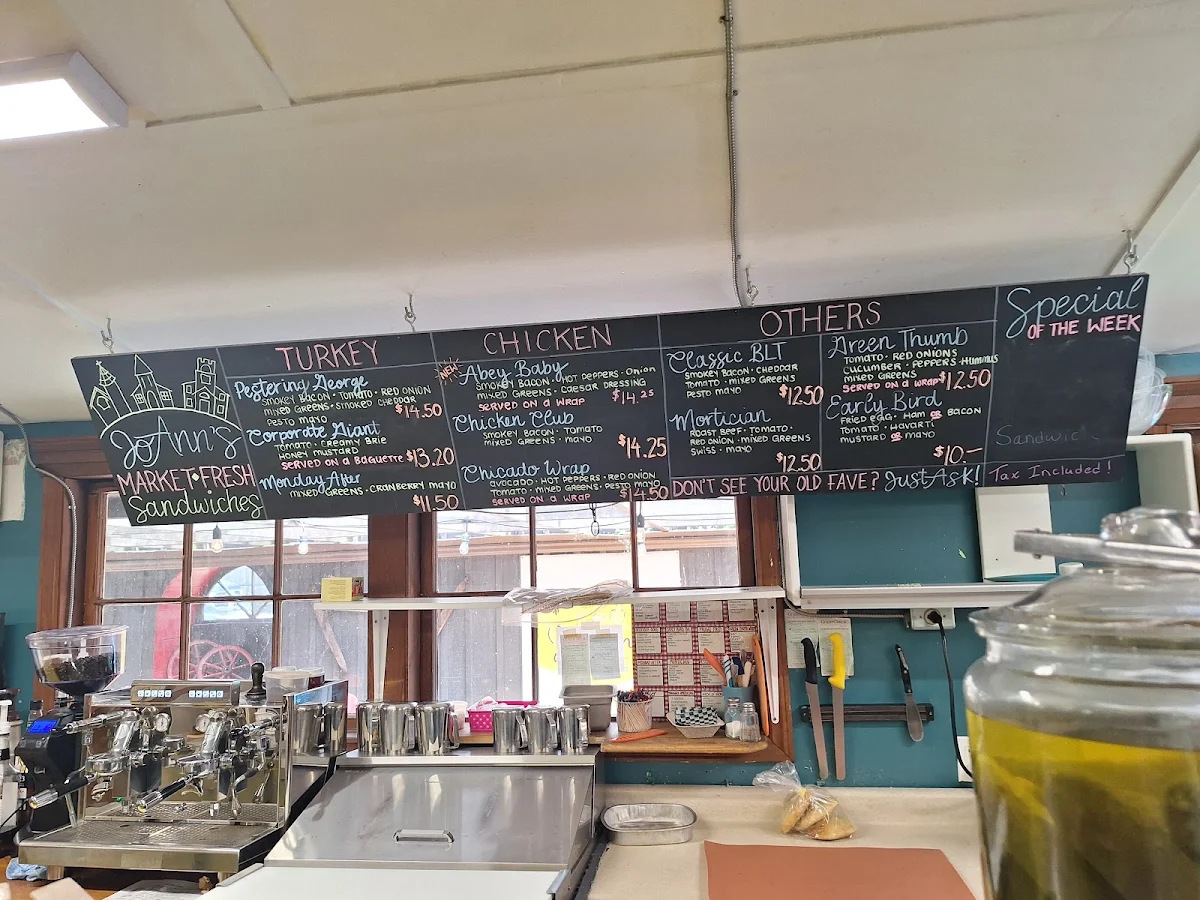 JoAnn's
MARKET•FRESH
Sandwiches
TURKEY
Pestering George
SMOKEY BACON • TOMATO • RED ONION
MIXED GREENS • SMOKED CHEDDAR
PESTO MAYO
$14.50
Corporate Giant
TOMATO • CREAMY BRIE
HONEY MUSTARD
SERVED ON a BAGUETTE $13.20
Monday After
MIXED GREENS • CRANBERRY MAYO
$11.50
CHICKEN
NEW
Abey Baby
SMOKEY BACON • HOT PEPPERS • Onion
MIXED GREENS • CAESAR DRESSING
SERVED ON a WRAP
$14.25
Chicken Club
SMOKEY BACON • TOMATO
MIXED GREENS • MAYO
$14.25
Chicado Wrap
AVOCADO • HOT PEPPERS • RED ONION
TOMATO • MIXED GREENS • PESTO MAYO
SERVED ON a WRAP
$14.50
OTHERS
Classic BLT
SMOKEY BACON • CHEDDAR
TOMATO • MIXED GREENS
PESTO MAYO
$12.50
Mortician
ROAST BEEF • TOMATO •
RED ONION • MIXED GREENS
SWISS • MAYO
$12.50
Green Thumb
TOMATO • RED ONIONS
CUCUMBER • PEPPERS • HUMMUS
MIXED GREENS
SERVED ON a WRAP $12.50
Early Bird
FRIED EGG • HAM OR BACON
TOMATO • HAVARTI
MUSTARD OR MAYO
$10.—
DON'T SEE YOUR OLD FAVE? Just Ask!
Special
OF THE WEEK
Tax Included!